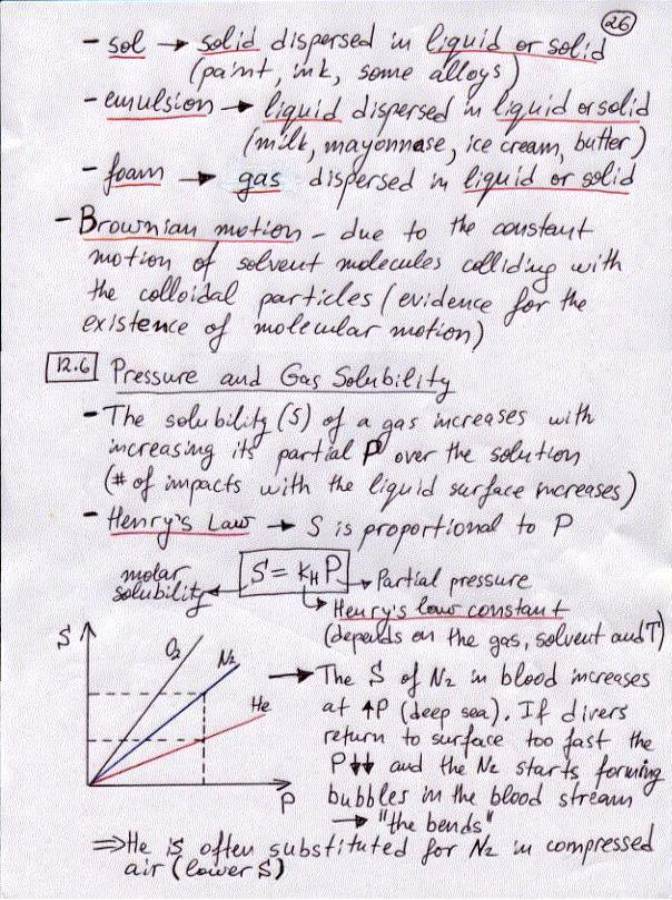 26
- sol → solid dispersed in liquid or solid
(paint, ink, some alloys)
- emulsion → liquid dispersed in liquid or solid
(milk, mayonnase, ice cream, butter)
- foam → gas dispersed in liquid or solid
- Brownian motion - due to the constant
motion of solvent molecules colliding with
the colloidal particles (evidence for the
existence of molecular motion)
12.6 Pressure and Gas Solubility
- The solubility (S) of a gas increases with
increasing its partial P over the solution
(# of impacts with the liquid surface increases)
- Henry's Law → S is proportional to P
molar solubility ← S = kH P → Partial pressure
→ Henry's law constant
(depends on the gas, solvent and T)
S O2 N2 He P
→ The S of N2 in blood increases
at ↑P (deep sea). If divers
return to surface too fast the
P↓↓ and the N2 starts forming
bubbles in the blood stream
→ "the bends"
⇒ He is often substituted for N2 in compressed
air (lower S)